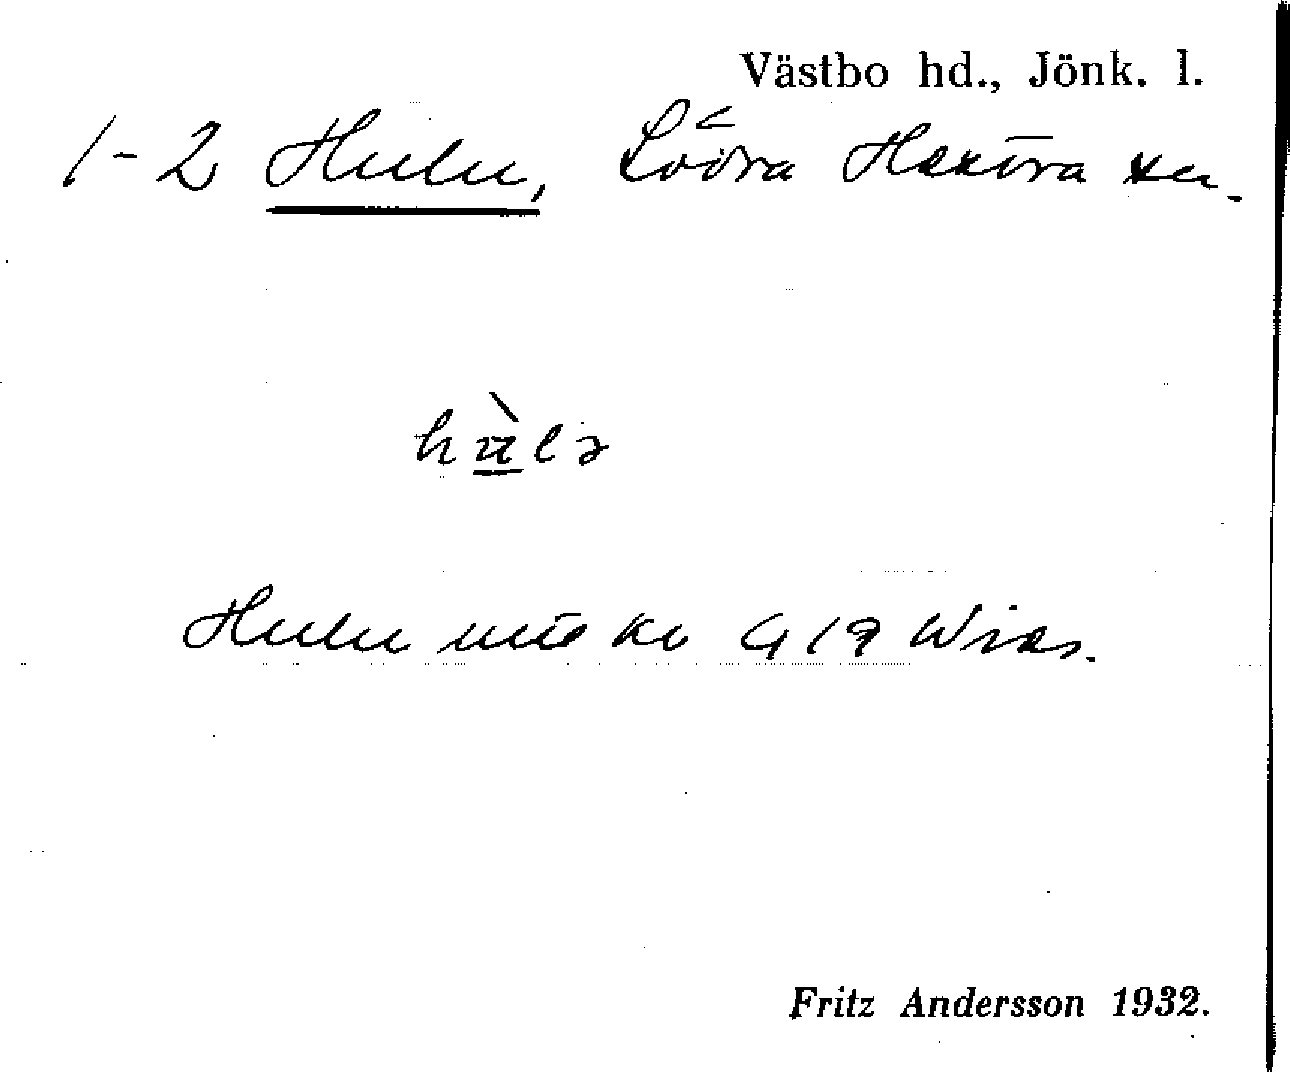 Västbo hd., Jönk. l.
1-2 Hulu, Södra Hestra sn.
hùlə
Hulu
Fritz Andersson 1932.